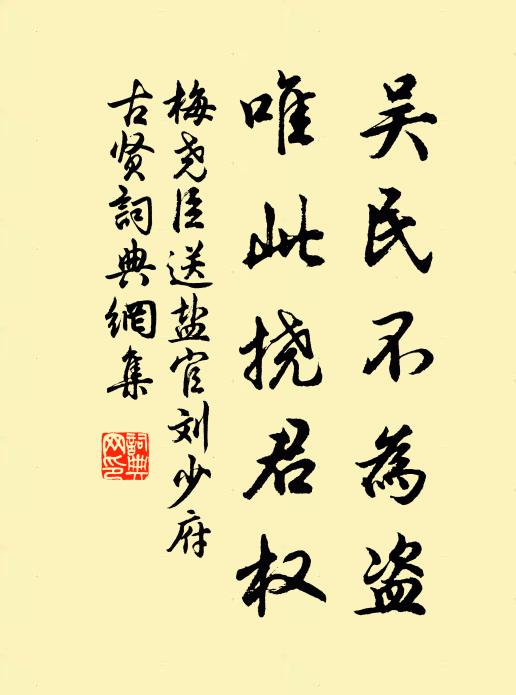 吴民不為盗
唯此挠君权
梅尧臣送盐官刘少府
古贤詞典網集
詞典网印